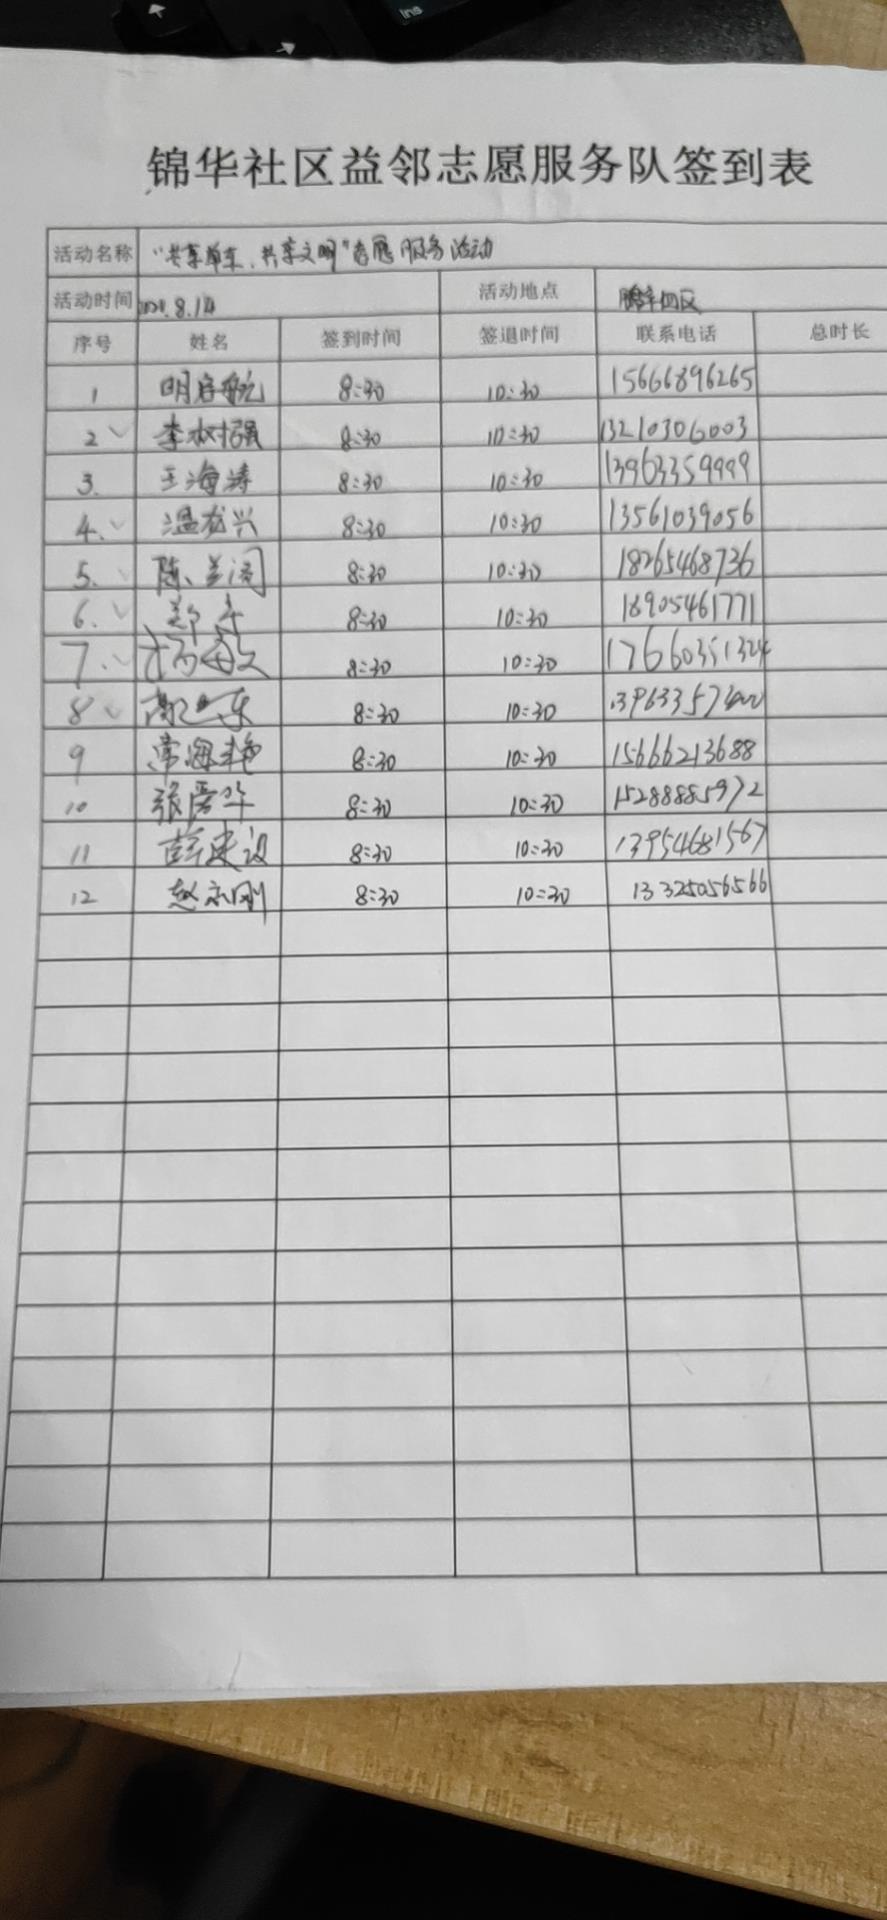 Ins
锦华社区益邻志愿服务队签到表
活动名称 "共享单车、共享文明"志愿服务活动
活动时间 8.14 活动地点 四区
序号 姓名 签到时间 签退时间 联系电话 总时长
1 明启航 8:30 10:30 15666896265
2 李树强 8:30 10:30 13210306003
3. 王海涛 8:30 10:30 13963359999
4. 温龙兴 8:30 10:30 13561039056
5. 陈兰阁 8:30 10:30 18265468736
6. 郑 8:30 10:30 18905461771
7. 8:30 10:30 17660351324
8 8:30 10:30
9 常海艳 8:30 10:30 15666213688
10 张 华 8:30 10:30 15288885972
11 薛建设 8:30 10:30 13954681567
12 赵永刚 8:30 10:30 13325056566